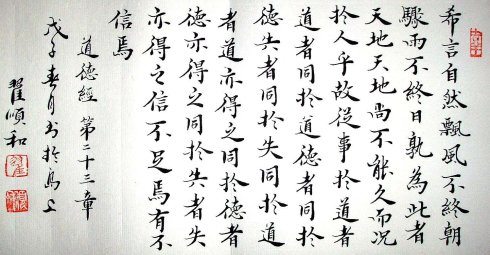 希言自然飄風不終朝
驟雨不終日孰為此者
天地天地尚不能久而況
於人乎故從事於道者
道者同於道德者同於
德失者同於失同於道
者道亦得之同於德者
德亦得之同於失者失
亦得之信不足焉有不
信焉
道德經第二十三章
戊子春月書於島上
翟順和